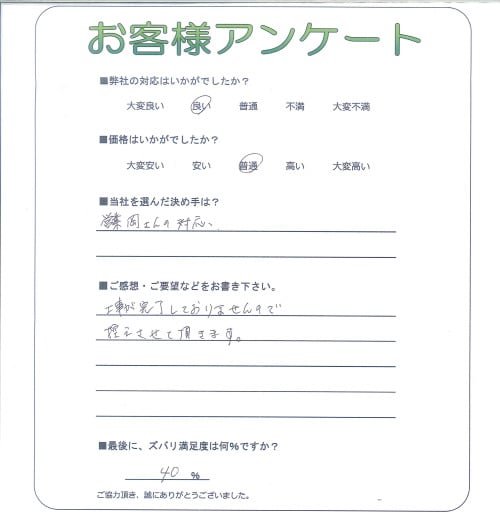 お客様アンケート
■弊社の対応はいかがでしたか？
大変良い 良い 普通 不満 大変不満
■価格はいかがでしたか？
大変安い 安い 普通 高い 大変高い
■当社を選んだ決め手は？
営業 岡さんの対応、
■ご感想・ご要望などをお書き下さい。
工事が完了しておりませんので
控えさせて頂きます。
■最後に、ズバリ満足度は何％ですか？
40 ％
ご協力頂き、誠にありがとうございました。